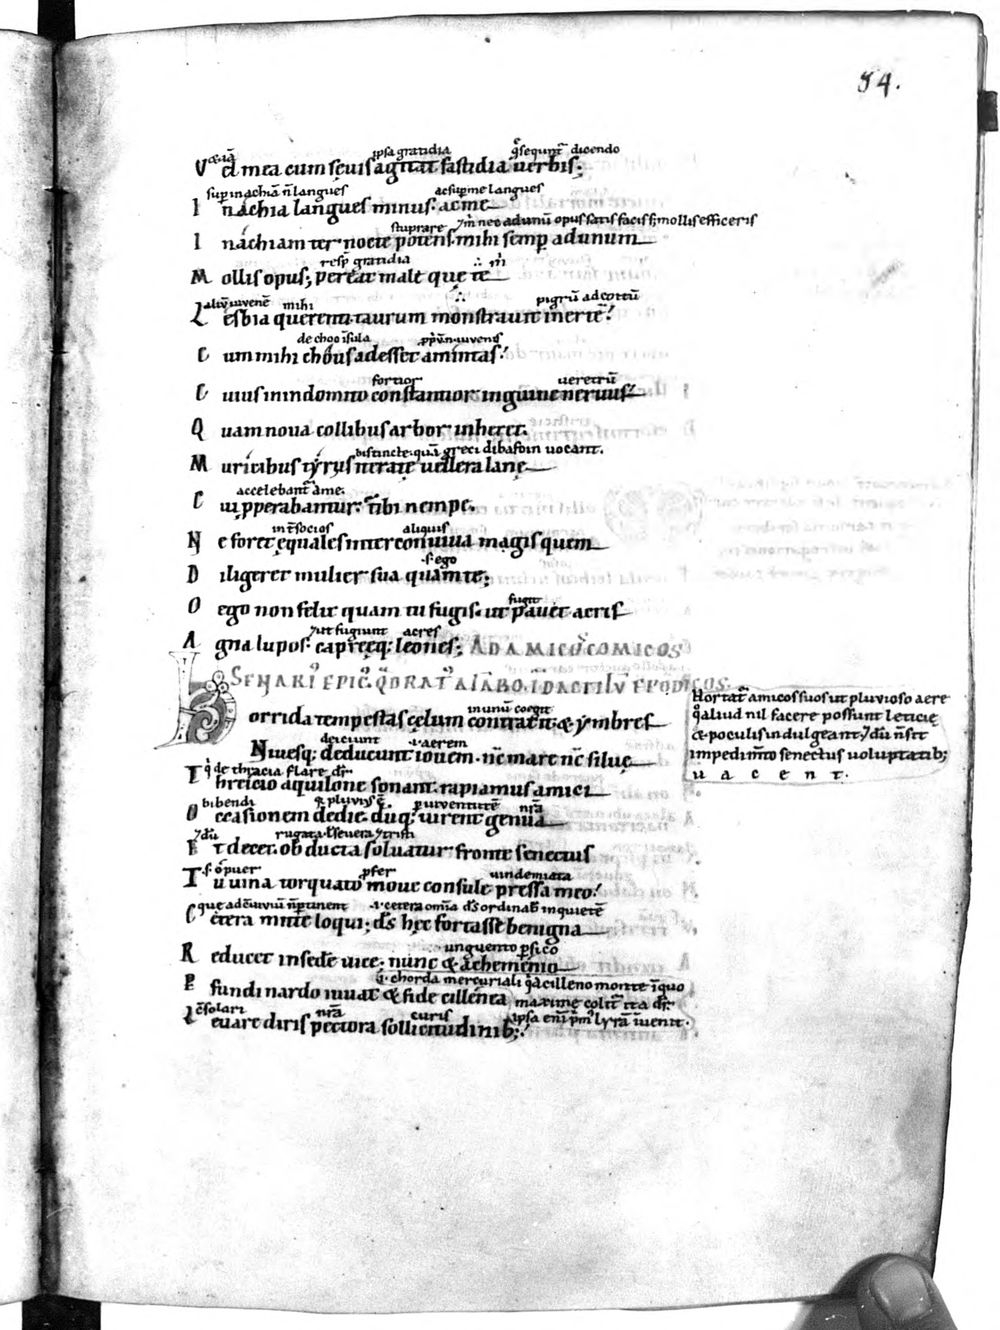 54.
ipsa gratidia qͥ sequunt᷑ dicendo
Vel mea cum sęuis agitat fastidia uerbis;
sup inachiā n̄ langues ac sup me langues
Inachia langues minus. ac me
stuprare
Inachiam ter nocte potens. mihi semp ad unum
resp̄ gratidia
Mollis opus; pereat male quę te
aliq̄ iuvenē mihi pigrū ad coitū
Lesbia querenti taurum monstrauit inertē!
de choo īsula
Cum mihi chous adesset amintas!
fortior ueretrū
Cuius in indomito constantior inguine neruus!
Quam noua collibus arbor inheret.
bis tincte. quā greci dibafoin uocant.
Muricibus tẏrẏs iteratę uellera lanę
accelebant᷑ a me.
Cui pperabantur. tibi nempe.
int̄ socios aliquis
Ne foret ęquales inter conuiua magis quem
.s. ego
Diligeret mulier sua quam te;
fugit
O ego non felix quam tu fugis. ut pauet acris
ut fugiunt acres
Agna lupos. capręq; leones; AD AMICOS COMICOS
in unū coegit
Horrida tempestas cęlum contraxit. & ẏmbres
deiciunt .i. aerem
Niuesq; deducunt iouem. nc̄ mare nc̄ siluę
q̇ de thracia flare dr̄.
Threicio aquilone sonant. rapiamus amici
bibendi uirn̄a
Occasionem de die. duq; uirent genua
rugata ł seuera ł tristi
Et decet. obducta soluatur fronte senectus
.s. o puer pfer uindemiata
Tu uina torquato moue consule pressa meo!
que ad cōuiuiū n̄ ptinent .i. cetera omīa d̄s ordinab̄ in quietē
Cetera mitte loqui; d̄s hęc fortasse benigna
unguento psico
Reducet in sede uice. nunc & achemenio
chorda mercuriali q̄a cilleno monte īquo
Pfundi nardo iuuat & fide cillenea maxime colit᷑ ita dr̄.
c̄solari nr̄a curis ipsa enī pm̄ lẏrā īuenit.
Leuare diris pectora sollicitudinib;!
Hortat᷑ amicos suos ut pluvioso aere
qͥ aliud nil facere possunt leticię
& poculis indulgeant. dū n̄ sit
impedimto senectus voluptatib;
uacent.